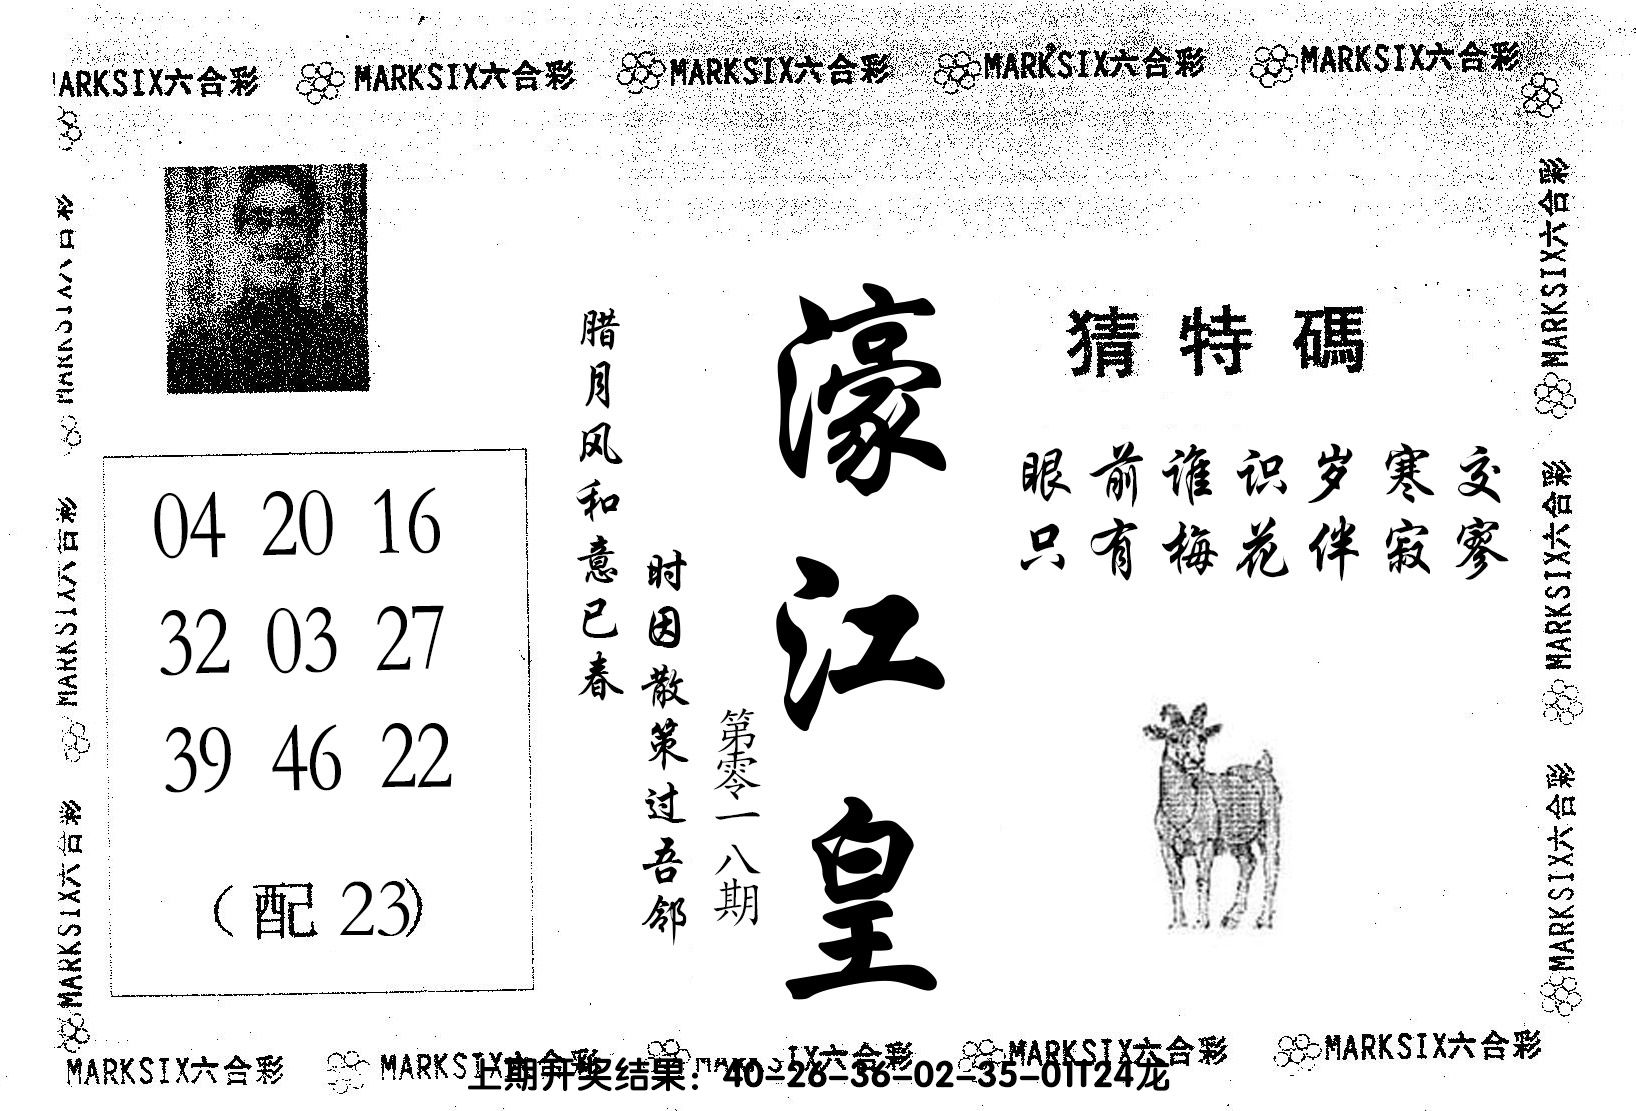 MARKSIX六合彩 MARKSIX六合彩 MARKSIX六合彩 MARKSIX六合彩
猜特碼
眼前谁识岁寒交
只有梅花伴寂寥
濠江皇
第零一八期
时因散策过吾邻
腊月风和意已春
04 20 16
32 03 27
39 46 22
（配 23）
MARKSIX六合彩
MARKSIX六合彩
MARKSIX六合彩
MARKSIX六合彩
MARKSIX六合彩
MARKSIX六合彩 MARKSIX六合彩 MARKSIX六合彩 MARKSIX六合彩
上期开奖结果：40-26-36-02-35-01T24龙